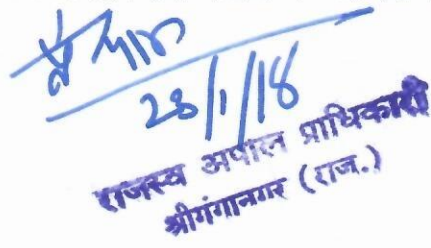 23/1/18
राजस्व अपील प्राधिकारी
श्रीगंगानगर (राज.)